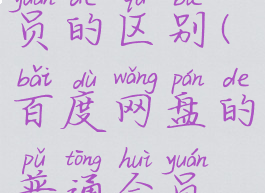 yuán de qū bié
员的区别(
bǎi dù wǎng pán de
百度网盘的
pǔ tōng huì yuán
普通会员